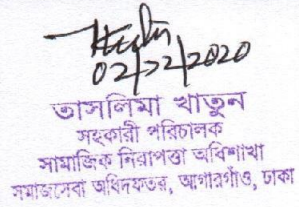 02/12/2020
তাসলিমা খাতুন
সহকারী পরিচালক
সামাজিক নিরাপত্তা অধিশাখা
সমাজসেবা অধিদফতর, আগারগাঁও, ঢাকা